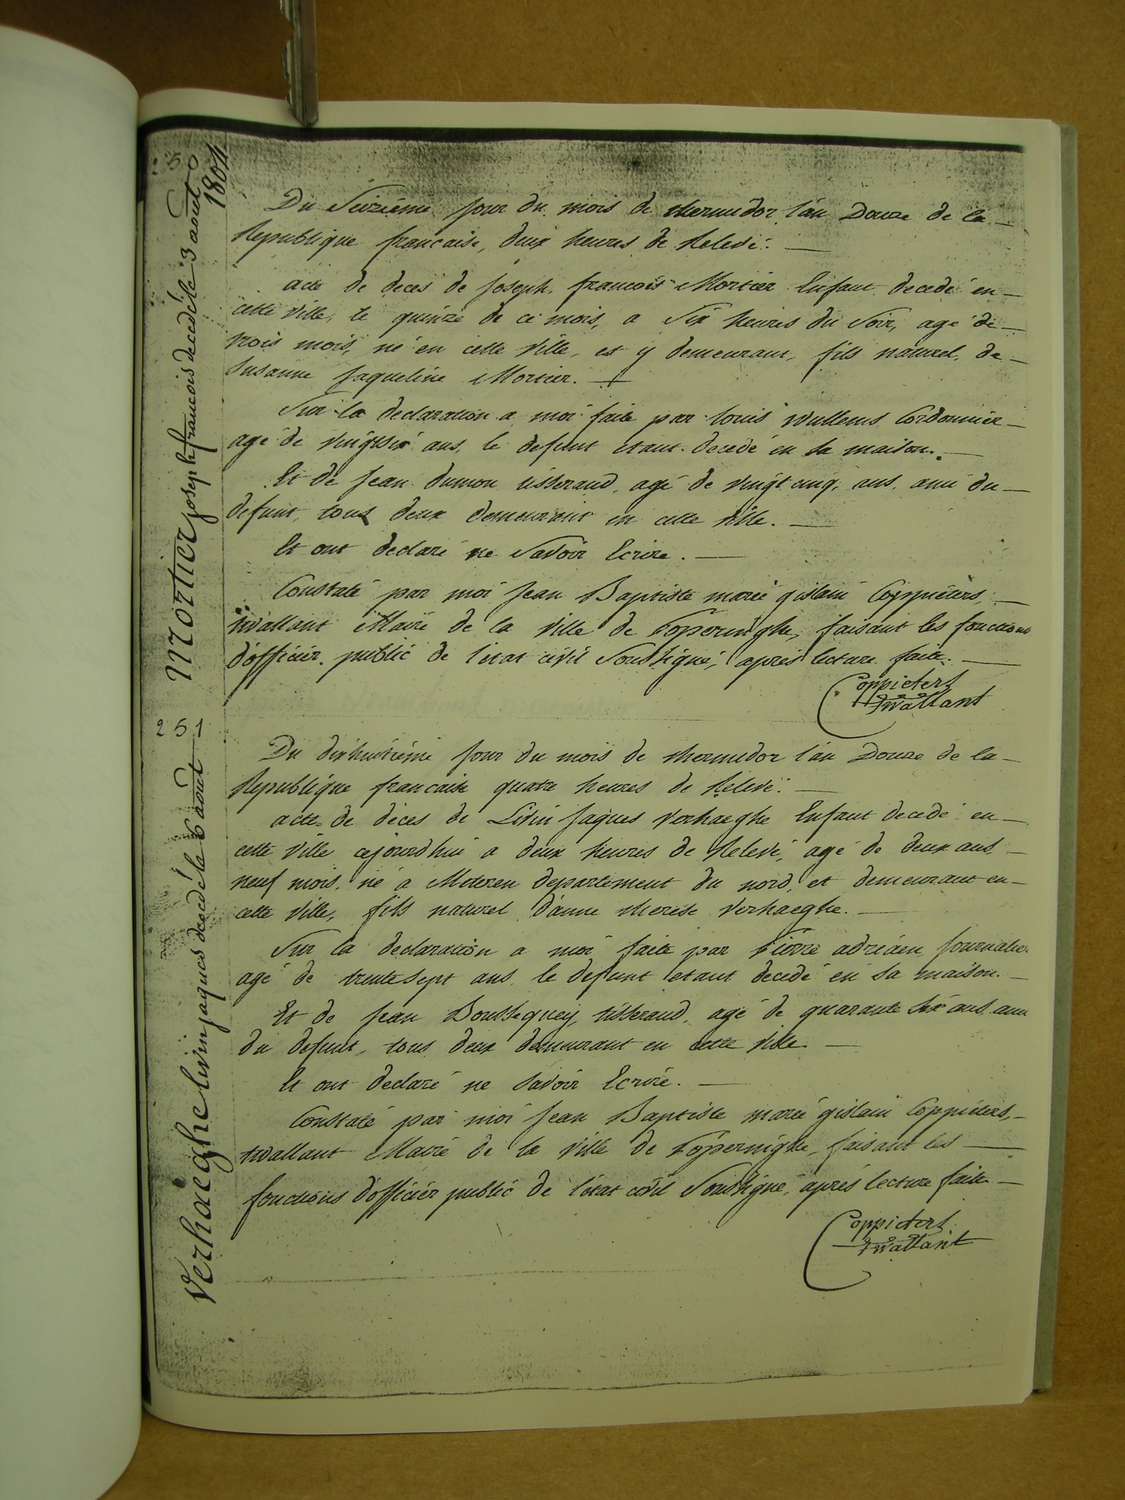 250
1804
Mortier joseph francois decedé le 3 aout
Du Seizieme jour du mois de thermidor l'an Douze de la
Republique francaise, deux heures de Relevé.
acte de deces de joseph francois Mortier Enfant decedé en
cette ville, le quinze de ce mois, a Six heures du Soir, agé de
trois mois, né en cette ville, et y demeurant, fils naturel, de
Susanne Jaqueline Mortier.
Sur la declaration a moi faite par Louis Wullems Cordonnier
agé de vingtsix ans, le defunt etant decedé en Sa maison.
Et de Jean dumon tisserand, agé de vingt cinq, ans, ami du
defunt, tous deux demeurant en cette ville.
Et ont declaré ne Savoir Ecrire.
Constaté par moi Jean Baptiste marie gislain Coppieters,
twallant Maire de la ville de Poperinghe, faisant les fonctions
d'officier public de l'etat civil Soussigné, après lecture faite.
Coppieters
twallant
251
Verhaeghe livin jaques decedé le 6 août
Du dixhuitieme jour du mois de thermidor l'an Douze de la
Republique francaise quatre heures de Relevé.
acte de déces de Livin Jaques Verhaeghe Enfant decedé en
cette ville cejourdhui a deux heures de Relevé, agé de deux ans,
neuf mois, né a Meteren departement du nord, et demeurant en
cette ville, fils naturel d'anne therese Verhaeghe.
Sur la declaration a moi faite par Pierre adriaen Journalier
agé de trente sept ans, le defunt etant decedé en Sa maison.
Et de Jean tisserand, agé de quarante Six ans ami
du defunt, tous deux demeurant en cette ville
Et ont declaré ne Savoir Ecrire.
Constaté par moi Jean Baptiste marie gislain Coppieters,
twallant Maire de la ville de Poperinghe, faisant les
fonctions d'officier public de l'état civil Soussigné, après lecture faite
Coppieters
twallant